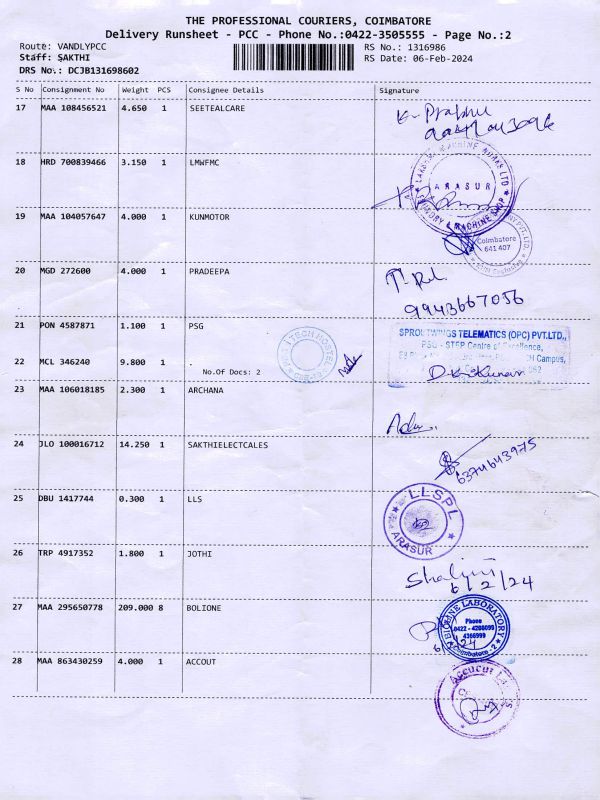 THE PROFESSIONAL COURIERS, COIMBATORE
Delivery Runsheet - PCC - Phone No.:0422-3505555 - Page No.:2
Route: VANDLYPCC
RS No.: 1316986
Staff: SAKTHI
RS Date: 06-Feb-2024
DRS No.: DCJB131698602
S No Consignment No Weight PCS Consignee Details Signature
17 MAA 108456521 4.650 1 SEETEALCARE
18 HRD 700839466 3.150 1 LMWFMC
LAKSHMI MACHINE WORKS LTD
ARASUR
FOUNDRY & MACHINE SHOP
19 MAA 104057647 4.000 1 KUNMOTOR
Coimbatore
641 407
20 MGD 272600 4.000 1 PRADEEPA
9943667056
21 PON 4587871 1.100 1 PSG
I TECH HOSTEL
SPROUTWINGS TELEMATICS (OPC) PVT.LTD.,
PSG - STEP Centre of Excellence,
Campus,
22 MCL 346240 9.800 1
No.Of Docs: 2
23 MAA 106018185 2.300 1 ARCHANA
24 JLO 100016712 14.250 1 SAKTHIELECTCALES
6374643975
25 DBU 1417744 0.300 1 LLS
LLSPL
ARASUR
26 TRP 4917352 1.800 1 JOTHI
6/2/24
27 MAA 295650778 209.000 8 BOLIONE
LABORATORY
Phone
0422 - 4208099
4366999
Coimbatore - 2
28 MAA 863430259 4.000 1 ACCOUT